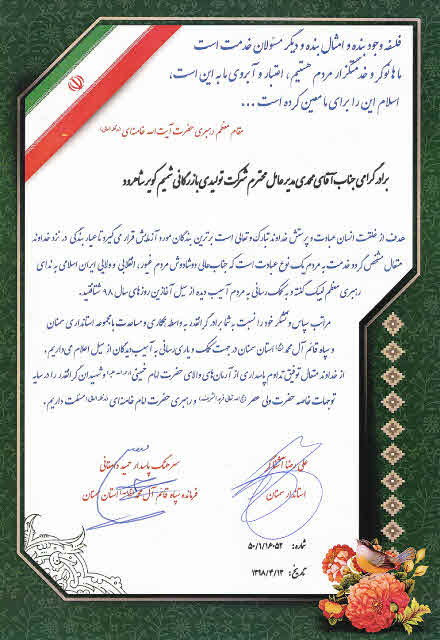 فلسفه وجود بنده و امثال بنده و دیگر مسئولان خدمت است
ماها نوکر و خدمتگزار مردم هستیم، اعتبار و آبروی ما به این است،
اسلام این را برای ما معین کرده است ...
مقام معظم رهبری حضرت آیت الله خامنه‌ای
برادر گرامی جناب آقای محمدی مدیر عامل محترم شرکت تولیدی بازرگانی شمیم کویر شاهرود
هدف از خلقت انسان عبادت و پرستش خداوند تبارک و تعالی است برترین بندگان مورد آزمایش قرار می‌گیرد تا عیار بندگی در نزد خداوند
متعال مشخص گردد خدمت به مردم یک نوع عبادت است که جناب عالی دوشادوش مردم غیور، انقلابی و ولایی ایران اسلامی به ندای
رهبری معظم لبیک گفته و به کمک رسانی به مردم آسیب دیده از سیل آغازین روزهای سال ۹۸ شتافتید.
مراتب سپاس و تشکر خود را نسبت به شما برادر گرانقدر به واسطه همکاری و مساعدت با مجموعه استانداری سمنان
و سپاه قائم آل محمد (عج) استان سمنان در جهت کمک و یاری رسانی به آسیب دیدگان از سیل اعلام می‌داریم.
از خداوند متعال توفیق تداوم پاسداری از آرمان‌های والای حضرت امام خمینی و شهیدان گرانقدر را در سایه
توجهات خاصه حضرت ولی عصر و رهبری حضرت امام خامنه‌ای مسئلت داریم.
علی رضا آشناگر
استاندار سمنان
سرهنگ پاسدار حمید دامغانی
فرمانده سپاه قائم آل محمد استان سمنان
شماره: ۵۰/۱/۱۶۰۵۲
تاریخ: ۱۳۹۸/۴/۱۳